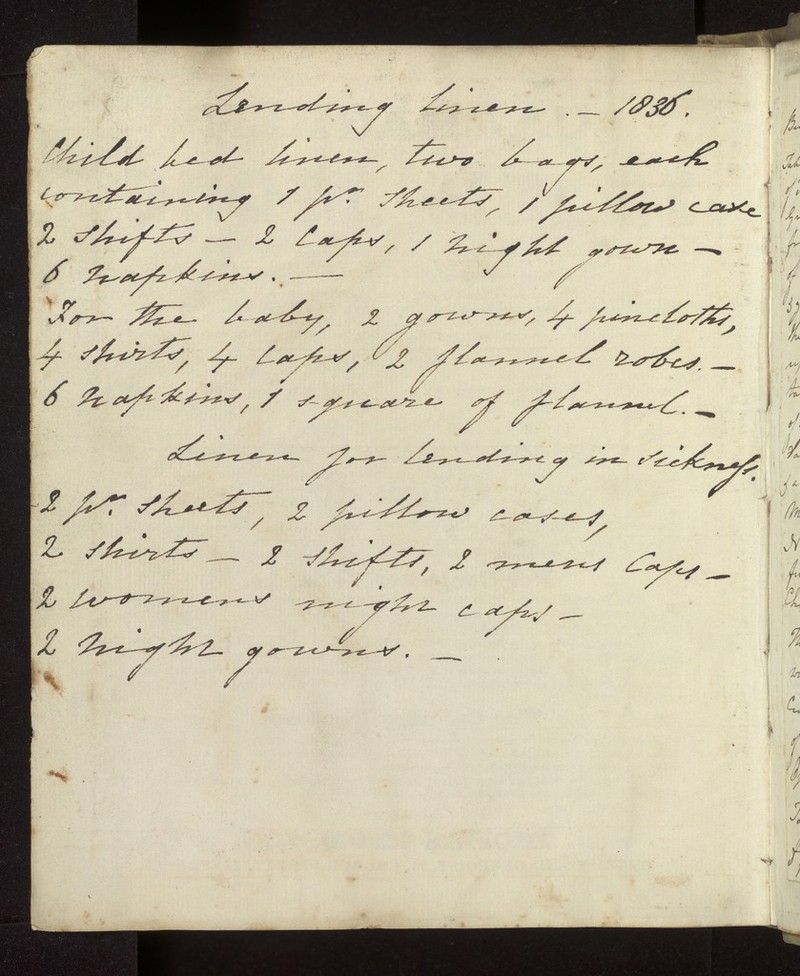 Lending linen. – 1836.
Child bed linen, two bags, each
containing 1 pr. Sheets, 1 pillow case
2 Shifts – 2 Caps, 1 night gown –
6 napkins. –
For the baby, 2 gowns, 4 pincloths,
4 Shirts, 4 Caps, 2 flannel robes. –
6 napkins, 1 square of flannel. –
Linen for lending in sickness.
2 pr. Sheets, 2 pillow cases,
2 Shirts – 2 Shifts, 2 mens Caps –
2 womens night caps –
2 night gowns. –